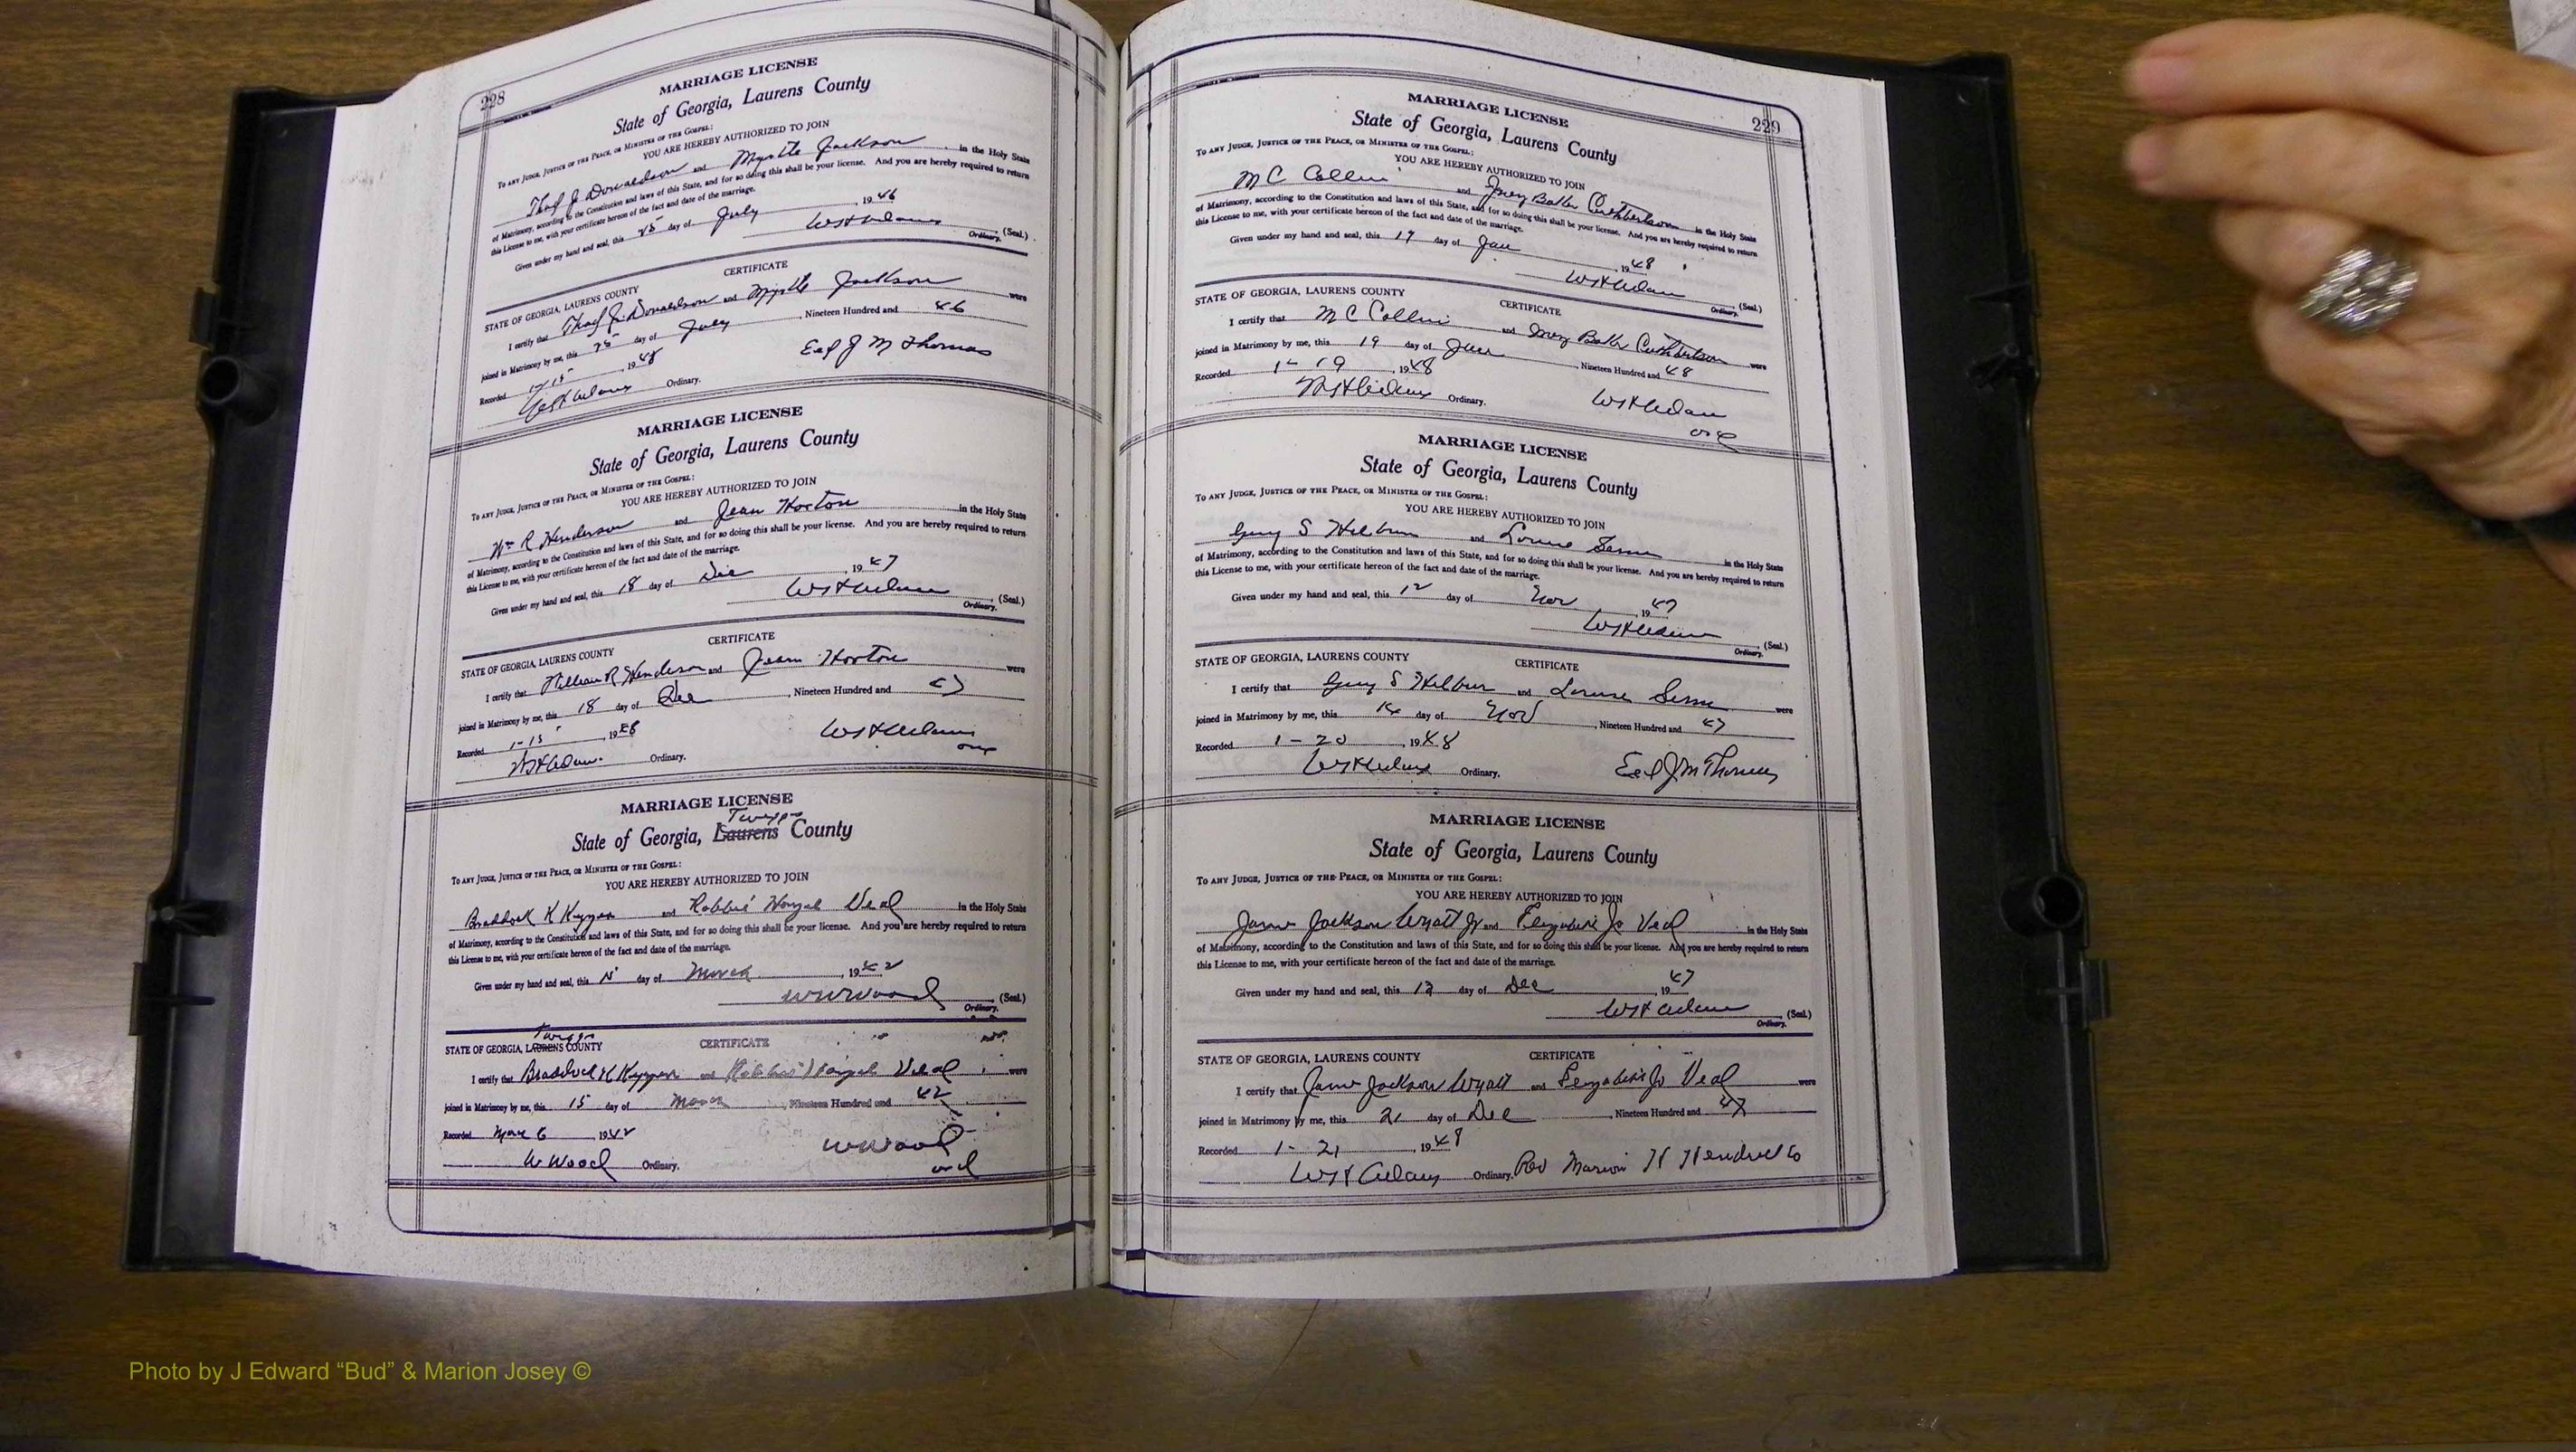 228
MARRIAGE LICENSE
State of Georgia, Laurens County
TO ANY JUDGE, JUSTICE OF THE PEACE, OR MINISTER OF THE GOSPEL:
YOU ARE HEREBY AUTHORIZED TO JOIN
Thad J Donaldson and Myrtle Jackson in the Holy State
of Matrimony, according to the Constitution and laws of this State, and for so doing this shall be your license. And you are hereby required to return
this License to me, with your certificate hereon of the fact and date of the marriage.
Given under my hand and seal, this 25 day of July, 1946
(Seal.)
Ordinary.
CERTIFICATE
STATE OF GEORGIA, LAURENS COUNTY
I certify that Thad J Donaldson and Myrtle Jackson were
joined in Matrimony by me, this 25 day of July, Nineteen Hundred and 46
Recorded 1-15, 1948 J M Thomas
Ordinary.
MARRIAGE LICENSE
State of Georgia, Laurens County
TO ANY JUDGE, JUSTICE OF THE PEACE, OR MINISTER OF THE GOSPEL:
YOU ARE HEREBY AUTHORIZED TO JOIN
Wm R Henderson and Jean Horton in the Holy State
of Matrimony, according to the Constitution and laws of this State, and for so doing this shall be your license. And you are hereby required to return
this License to me, with your certificate hereon of the fact and date of the marriage.
Given under my hand and seal, this 18 day of Dec, 1947
(Seal.)
Ordinary.
CERTIFICATE
STATE OF GEORGIA, LAURENS COUNTY
I certify that William R Henderson and Jean Horton were
joined in Matrimony by me, this 18 day of Dec, Nineteen Hundred and 47
Recorded 1-15, 1948
Ordinary.
MARRIAGE LICENSE
Twiggs
State of Georgia, Laurens County
TO ANY JUDGE, JUSTICE OF THE PEACE, OR MINISTER OF THE GOSPEL:
YOU ARE HEREBY AUTHORIZED TO JOIN
Braddock K and Veal in the Holy State
of Matrimony, according to the Constitution and laws of this State, and for so doing this shall be your license. And you are hereby required to return
this License to me, with your certificate hereon of the fact and date of the marriage.
Given under my hand and seal, this day of March, 1942
(Seal.)
Ordinary.
Twiggs
STATE OF GEORGIA, LAURENS COUNTY CERTIFICATE
I certify that Braddock K and Veal were
joined in Matrimony by me, this 15 day of March, Nineteen Hundred and 42
Recorded Mar 6 1942
W Wood Ordinary.
229
MARRIAGE LICENSE
State of Georgia, Laurens County
TO ANY JUDGE, JUSTICE OF THE PEACE, OR MINISTER OF THE GOSPEL:
YOU ARE HEREBY AUTHORIZED TO JOIN
M C Collins and Cuthbertson in the Holy State
of Matrimony, according to the Constitution and laws of this State, and for so doing this shall be your license. And you are hereby required to return
this License to me, with your certificate hereon of the fact and date of the marriage.
Given under my hand and seal, this 19 day of Jan, 1948
(Seal.)
Ordinary.
STATE OF GEORGIA, LAURENS COUNTY CERTIFICATE
I certify that M C Collins and Cuthbertson were
joined in Matrimony by me, this 19 day of Jan, Nineteen Hundred and 48
Recorded 1-19, 1948
Ordinary.
MARRIAGE LICENSE
State of Georgia, Laurens County
TO ANY JUDGE, JUSTICE OF THE PEACE, OR MINISTER OF THE GOSPEL:
YOU ARE HEREBY AUTHORIZED TO JOIN
Guy S Hilbun and Louise in the Holy State
of Matrimony, according to the Constitution and laws of this State, and for so doing this shall be your license. And you are hereby required to return
this License to me, with your certificate hereon of the fact and date of the marriage.
Given under my hand and seal, this 12 day of Nov, 1947
(Seal.)
Ordinary.
STATE OF GEORGIA, LAURENS COUNTY CERTIFICATE
I certify that Guy S Hilbun and Louise were
joined in Matrimony by me, this 14 day of Nov, Nineteen Hundred and 47
Recorded 1-20, 1948
Ordinary. J M Thomas
MARRIAGE LICENSE
State of Georgia, Laurens County
TO ANY JUDGE, JUSTICE OF THE PEACE, OR MINISTER OF THE GOSPEL:
YOU ARE HEREBY AUTHORIZED TO JOIN
James Jackson Wyatt Jr and Elizabeth Jo Veal in the Holy State
of Matrimony, according to the Constitution and laws of this State, and for so doing this shall be your license. And you are hereby required to return
this License to me, with your certificate hereon of the fact and date of the marriage.
Given under my hand and seal, this 13 day of Dec, 1947
(Seal.)
Ordinary.
STATE OF GEORGIA, LAURENS COUNTY CERTIFICATE
I certify that James Jackson Wyatt and Elizabeth Jo Veal were
joined in Matrimony by me, this 21 day of Dec, Nineteen Hundred and 47
Recorded 1-21, 1948
Ordinary. Rev Marvin H
Photo by J Edward “Bud” & Marion Josey ©